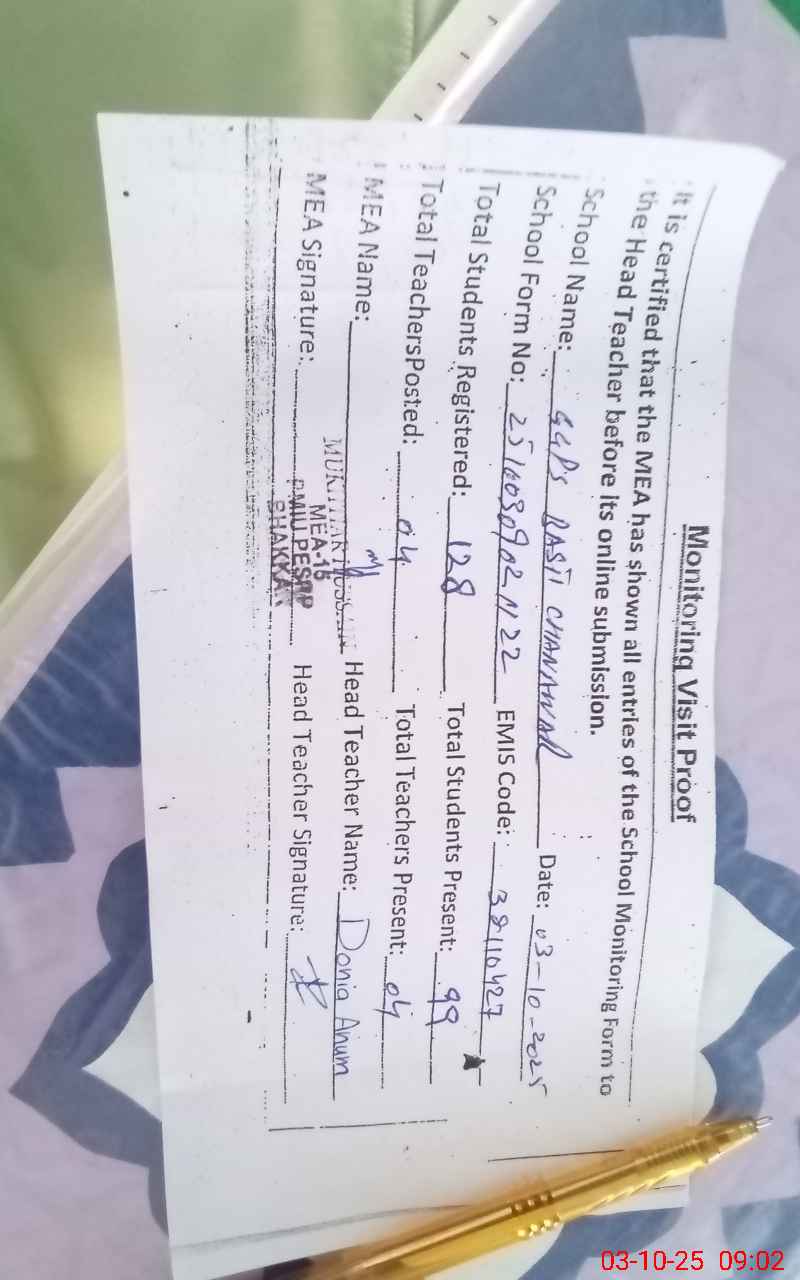 Monitoring Visit Proof
It is certified that the MEA has shown all entries of the School Monitoring Form to
the Head Teacher before its online submission.
School Name: GGPS BASTI CHANHWAR Date: 03-10-2025
School Form No: EMIS Code: 38110427
Total Students Registered: 128 Total Students Present: 99
Total TeachersPosted: 04 Total Teachers Present: 04
MEA Name: MUKHTIAR HUSSAIN Head Teacher Name: Donia Anum
MEA-15
MEA Signature: PMIU PESRP Head Teacher Signature:
BHAKKAR
03-10-25 09:02